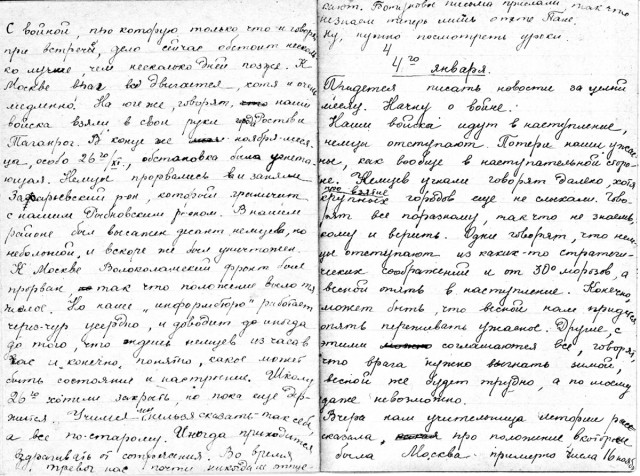 С войной, про которую только что и говорят
при встрече, дело сейчас обстоит несколь-
ко лучше чем несколько дней позже. К
Москве враг все двигается, хотя и очень
медленно. На юге же, говорят, наши
войска взяли в свои руки Ростов и
Таганрог. В конце же ноября меся-
ца, особо 26го/XI, обстановка была угнета-
ющая. Немцы прорвались и заняли
район, который граничит
с нашим районом. В нашем
районе был высажен десант немцев, но
небольшой, и вскоре же был уничтожен.
К Москве Волоколамский фронт был
прорван так что положение было тя-
желое. Но наше "информбюро" работает
через-чур усердно, и доводит до иногда
до того, что ждешь немцев из часа в
час и, конечно, понятно, какое может
быть состояние и настроение. Школу
26го хотели закрыть, но пока еще дер-
жится. Учимся нельзя сказать так себе
а все по-старому. Иногда приходится
вздрагивать от сотрясения. Во время
тревог нас почти никогда не
письма прислали, так что
не знаем теперь лишь о
Ну, нужно посмотреть уроки.
4
4го января.
Придется писать новости за целый
месяц. Начну о войне.
Наши войска идут в наступление,
немцы отступают. Потери наши ужас-
ны, как вообще в наступательной сторо-
не. Немцев угнали говорят далеко, хотя
что взятие
крупных городов еще не слыхали. Гово-
рят все поразному, так что не знаешь
кому и верить. Одни говорят, что нем-
цы отступают из каких-то стратеги-
ческих соображений и от 30° морозов, а
весной опять в наступление. Конечно,
может быть, что весной нам придется
опять переживать ужасное. Другие, с
этими соглашаются все, говорят,
что врага нужно выгнать зимой,
весной же будет трудно, а по моему
даже невозможно.
Вчера нам учительница истории расс-
сказала, про положение в котором
была Москва примерно числа 16 нояб.